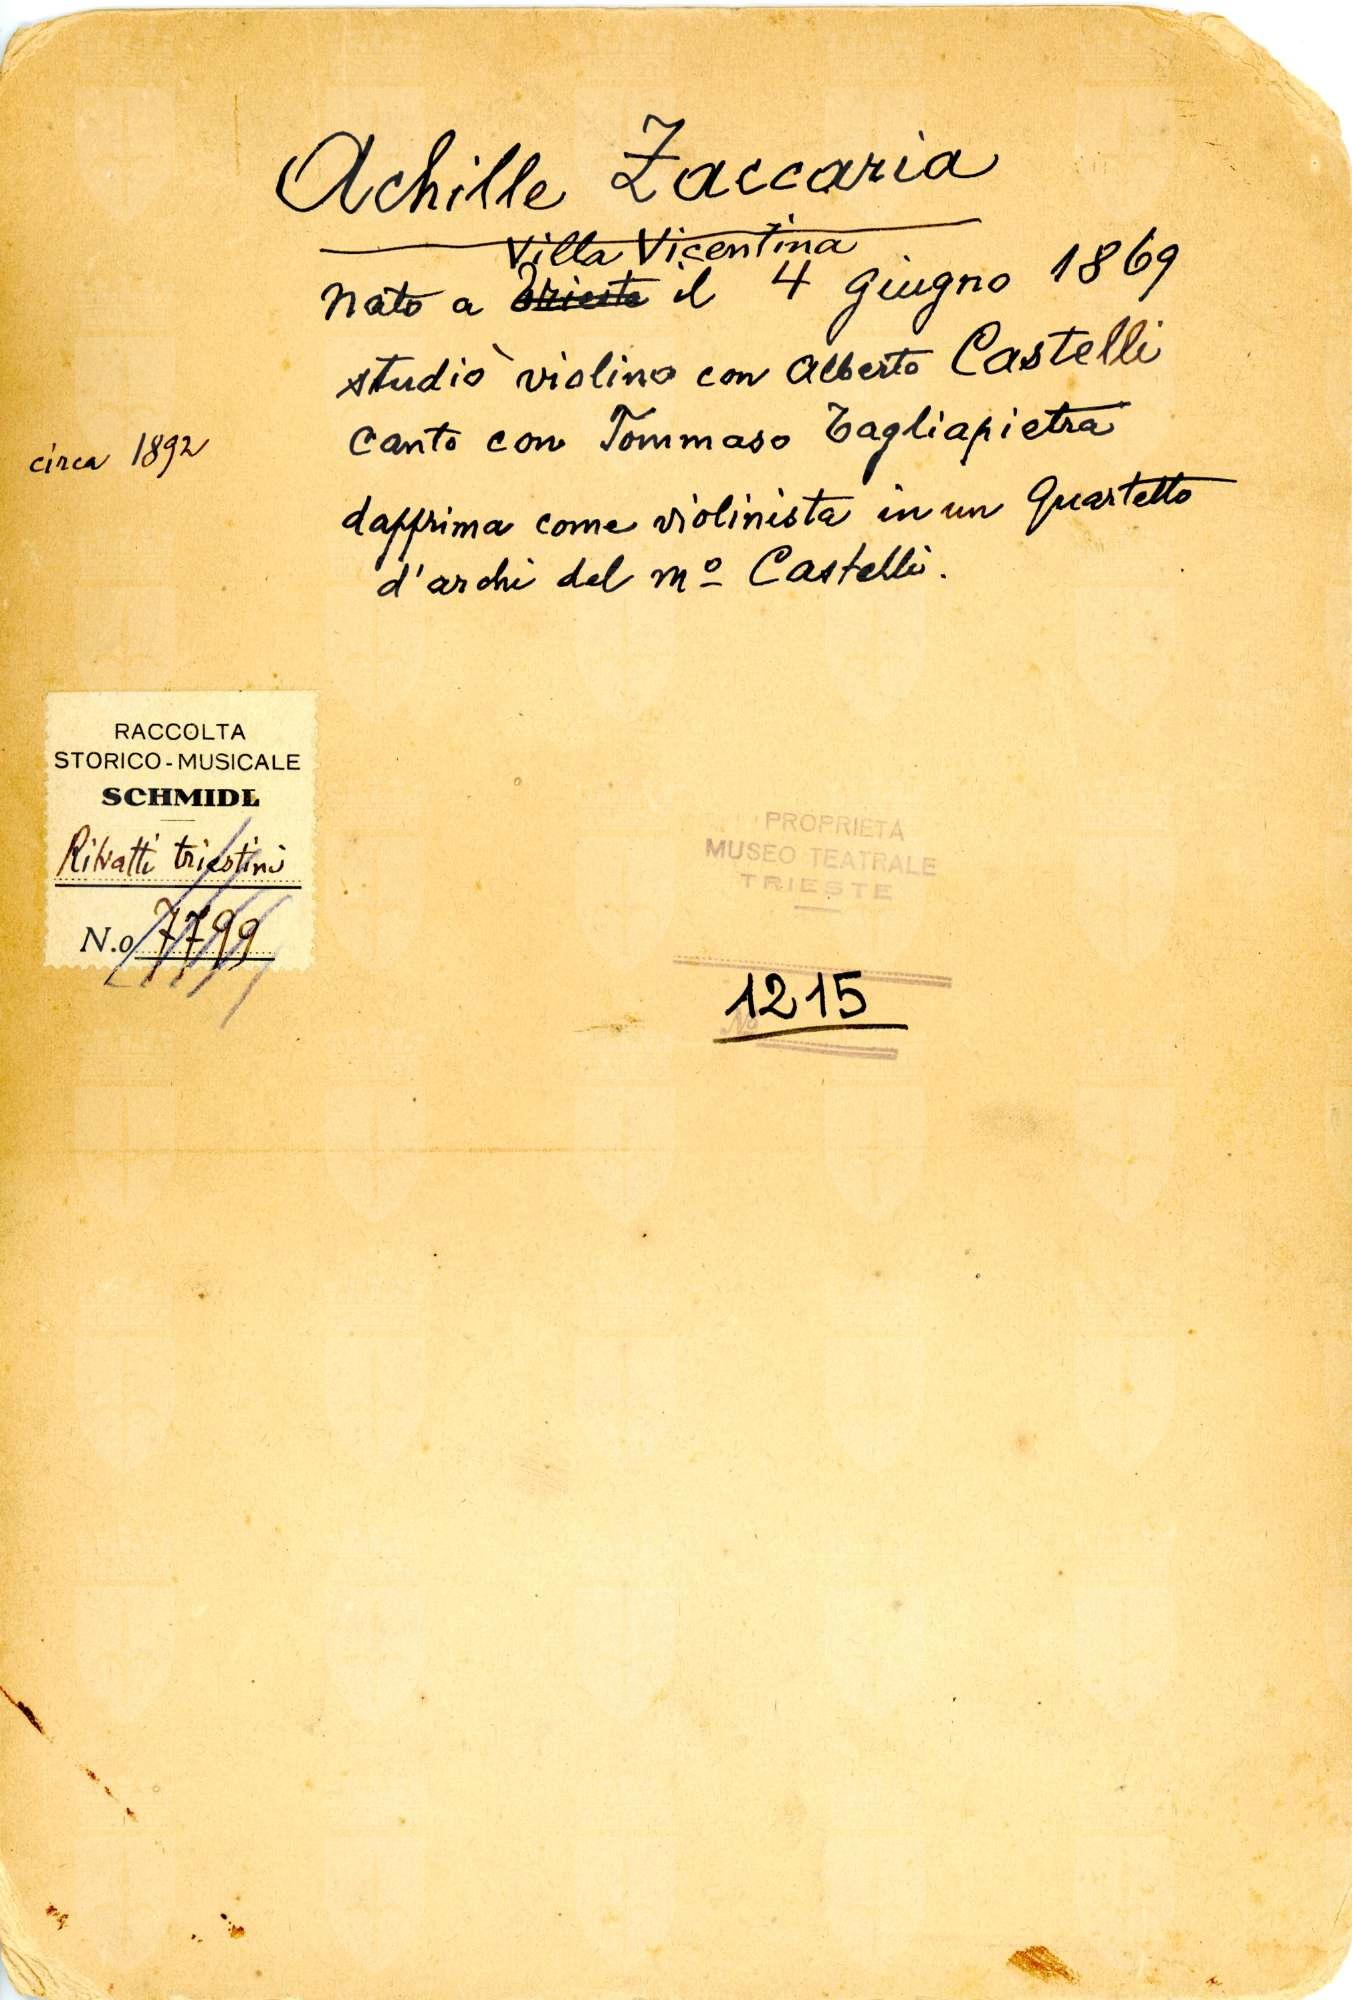 Achille Zaccaria
Villa Vicentina
nato a Trieste il 4 giugno 1869
studiò violino con Alberto Castelli
canto con Tommaso Tagliapietra
circa 1892
dapprima come violinista in un Quartetto
d'archi del mº Castelli.
RACCOLTA
STORICO-MUSICALE
SCHMIDL
Ritratti triestini
N.o 7799
PROPRIETÀ
MUSEO TEATRALE
TRIESTE
1215
Nº